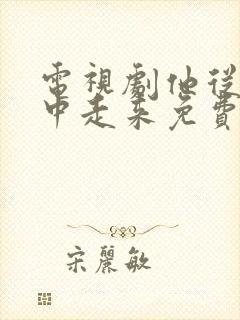 電視劇他從
中走来免費
宋麗敏